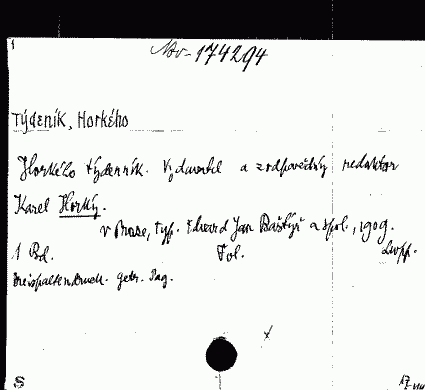 Nv-174294
Týdeník, Horkého
Horkého týdenník. Vydavatel a zodpovědný redaktor
Karel Horký.
v Praze, typ. Eduard Jan Baštýř a spol., 1909.
1 Bd. Fol.
Dreispalten Druck. getr. Pag.
S